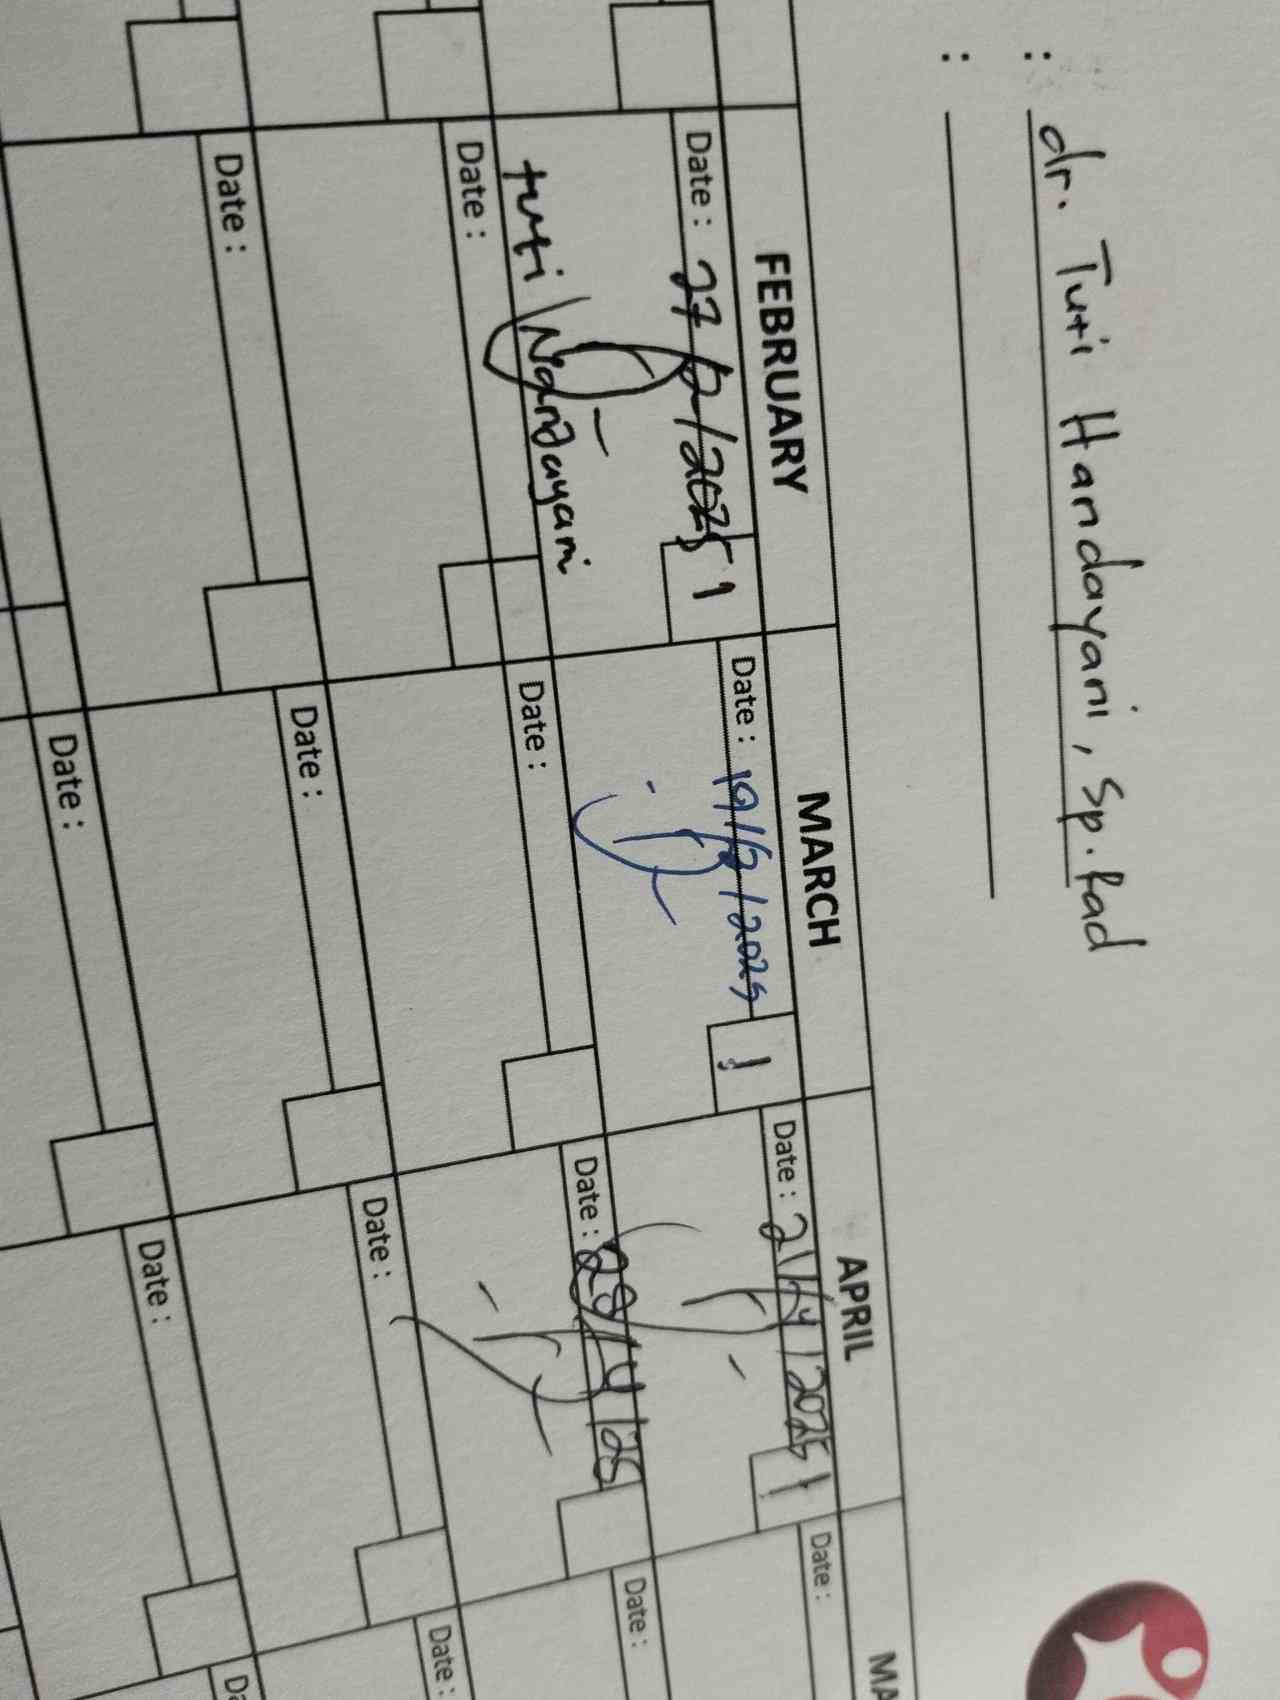 : dr. Tuti Handayani, Sp.Rad
:
FEBRUARY MARCH APRIL MA
Date : 27/2/2025 1 Date : 19/3/2025 1 Date : 21/4/2025 1 Date :
tuti Handayani
Date : Date : Date : 29/4/25 Date :
Date : Date : Date : Date :
Date : Date : Da